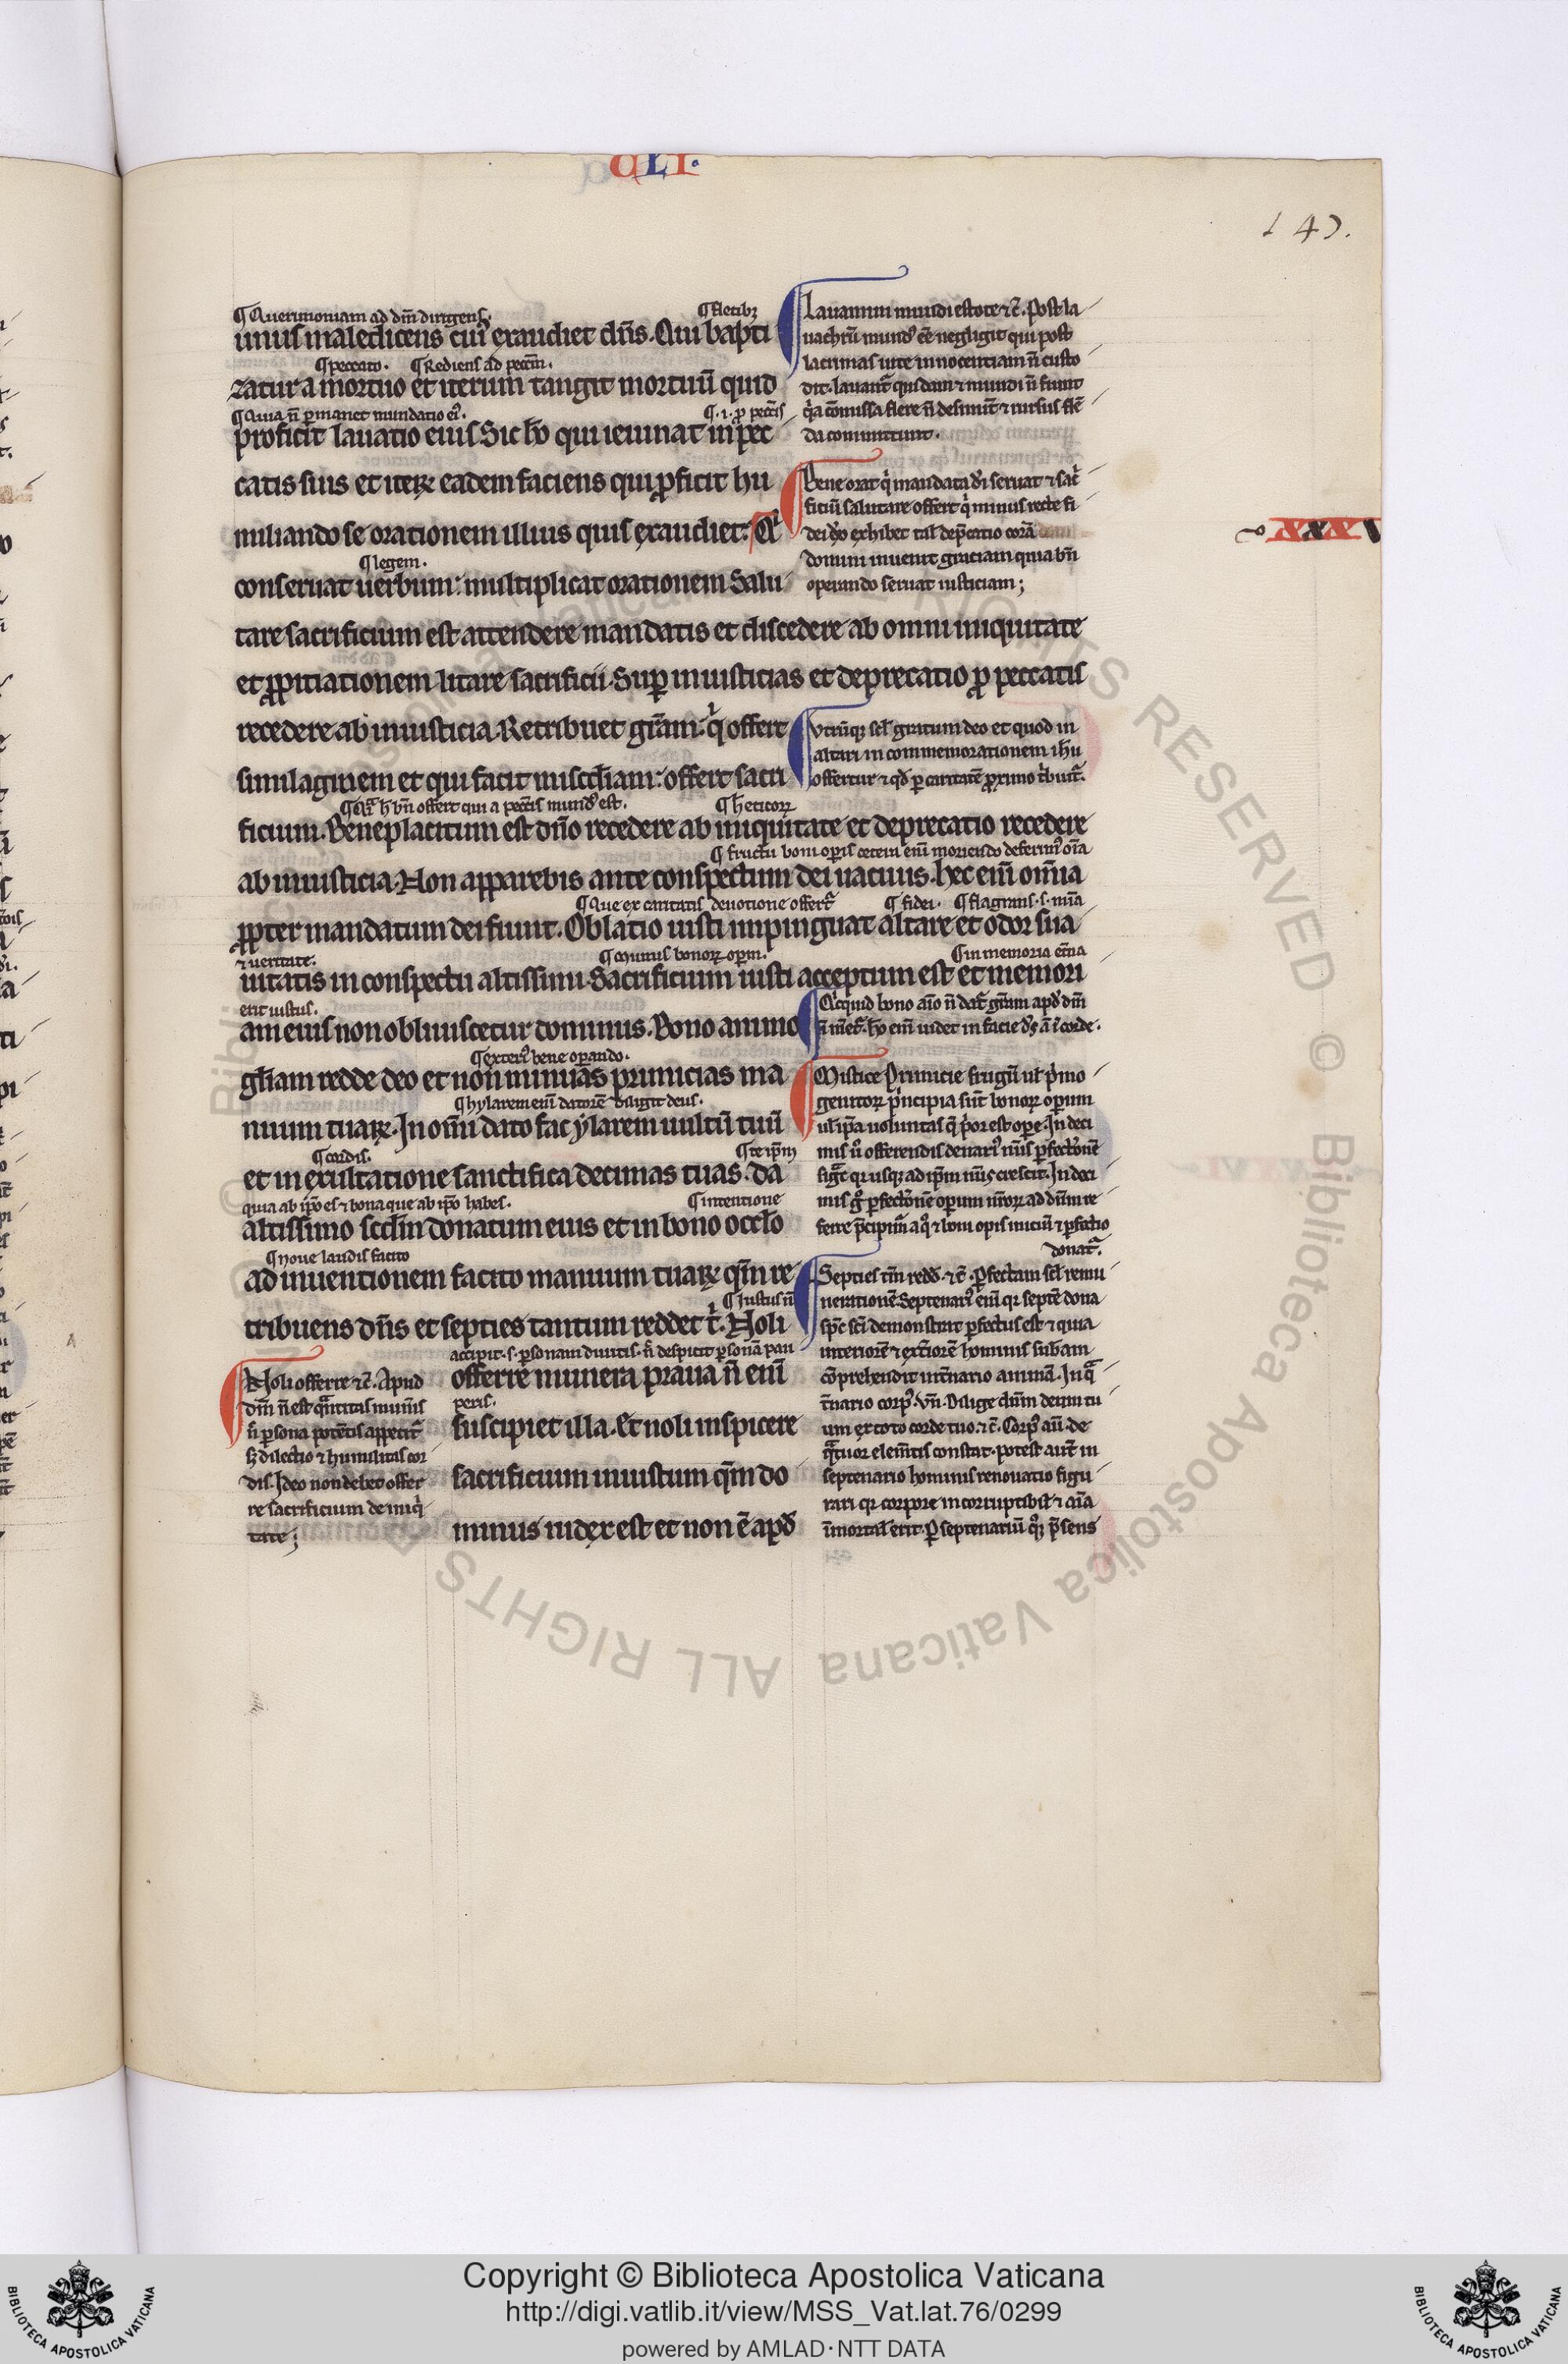 CLI.
143.
¶ Querimoniam ad dm̅ dirigens. ¶ fletibꝫ
unus maledicens cui᷒ exaudiet dn̅s. Qui bapti
¶ peccato. ¶ Rediens ad pecc̅m.
zatur a mortuo et iterum tangit mortuu̅ quid
¶ Quia n̅ ꝑmanet mundatio ei᷒. ¶ .i. ꝓ pecc̅is
proficit lauatio eius Sic ho̅ qui ieiunat in pec
catis suis et iteꝝ eadem faciens qui ꝓficit hu
miliando se orationem illius quis exaudiet. Qi
¶ legem.
conseruat uerbum: multiplicat orationem Salu
tare sacrificium est attendere mandatis et discedere ab omni iniquitate
et ꝓpitiationem litare sacrificii. Suꝑ iniusticias et deprecatio ꝓ peccatis
recedere ab iniusticia. Retribuet gr̅am: qi offert
similaginem et qui facit misc̅diam: offert sacri
ficium. Beneplacitum est dn̅o recedere ab iniquitate et deprecatio recedere
¶ fructu boni oꝑis cetera eni̅ moriendo deserim᷒ oi̅a
ab iniusticia. Non apparebis ante conspectum dei uacuus. hec eni̅ om̅ia
¶ Que ex caritatis deuotione offert᷑ ¶ fidei. ¶ flagrans
ꝓpter mandatum dei fiunt. Oblatio iusti impinguat altare et odor sua
⁊ ueritate. ¶ Munus bonoꝝ oꝑum. ¶ in memoria et̅na
uitatis in conspectu altissimi. Sacrificium iusti acceptum est et memori
erit iustus.
am eius non obliuiscetur dominus. Bono animo
¶ exteri᷒ bene oꝑando.
gl̅iam redde deo et non minuas primicias ma
¶ hylarem eni̅ datore̅ diligit deus.
nuum tuaꝝ. In om̅i dato fac ylarem uultu̅ tuu̅
¶ cordis. ¶ te ip̅m
et in exultatione sanctifica decimas tuas. da
quia ab ip̅o es ⁊ bona que ab ip̅o habes. ¶ intentione
altissimo scd̅m donatum eius et in bono oc̅lo
¶ noue laudis facito
ad inuentionem facito manuum tuaꝝ qm̅ re
¶ Iustus n̅
tribuens dn̅s et septies tantum reddet ti. Noli
accipit .s. ꝑsonam diuitis. n̅ despicit ꝑsona̅ pau
offerre munera praua n̅ eni̅
peris.
suscipiet illa. Et noli inspicere
sacrificium iniustum qm̅ do
minus iudex est et non e̅ apd̅
Noli offerre ⁊c̅. Apud
dm̅ n̅ est qͣntitas mun̅is
n̅ ꝑsona pote̅tis appetit᷑
sꝫ dilectio ⁊ humilitas cor
dis. Ideo non debet offer
re sacrificium de iniqi
tate;
Lauamini mundi estote ⁊c̅. Post la
uachru̅ mund᷒ e̅e negligit qui post
lacrimas uite innocentiam n̅ custo
dit. lauant᷑ quidam ⁊ mundi n̅ fiunt
qͥa co̅missa flere n̅ desinu̅t ⁊ rursus fle̅
da committunt.
Bene orat qi mandata di̅ seruat ⁊ sacͥ
ficiu̅ salutare offert qi minus recte fi
dei do̅ exhibet tal̅ dep̅catio cora̅
domin inuenit graciam quia bn̅
operando seruat iusticiam;
Utru̅qꝫ scl̅ gratum deo et quod in
altari in commemorationem ih̅u
offertur ⁊ qd̅ ꝑ caritate̅ ꝓximo tͥbuit᷑.
Qicquid bono ai̅o n̅ dat᷑ gr̅am apd̅ dm̅
Mistice Primicie frugu̅ ul̅ pͥmo
genitoꝝ pͥncipia su̅t bonoꝝ oꝑum
ul̅ ip̅a uoluntas q̅ pͥor est oꝑe. In deci
mis u̅ offerendis denari᷒ nu̅us ꝑfectione̅
figͣt qr usqꝫ ad ip̅m nu̅us crescit. In deci
mis gͦ ꝑfectione̅ oꝑum nr̅oꝝ ad dn̅m re
ferre p̅cipim᷑ a quo ⁊ boni opis iniciu̅ ⁊ ꝑfectio
donat᷑.
Septies tm̅ redd̅. ⁊c̅. ꝑfectam scl̅ remu
neratione̅. Septenari᷒ eni̅ qr septe̅ dona
sp̅c sc̅i demonstrat ꝑfectus est ⁊ quia
interiore̅ ⁊ ext̅iore̅ hominis subam
co̅prehendit int̅nario anima̅. In qͣ
t̅nario corp᷒. Vn̅. Dilige dn̅m deum tu
um ex toto corde tuo. ⁊c̅. Corp᷒ au̅. de
qͣtuor elem̅tis constat. potest aut̅ in
septenario hominis renouatio figu
rari qr corpore incorruptibil̅ ⁊ ai̅a
i̅mortal̅ erit. ꝑ septenariu̅ qͦꝫ p̅sens
XXXV
Copyright © Biblioteca Apostolica Vaticana
http://digi.vatlib.it/view/MSS_Vat.lat.76/0299
powered by AMLAD·NTT DATA
BIBLIOTECA APOSTOLICA VATICANA
BIBLIOTECA APOSTOLICA VATICANA
© Biblioteca Apostolica Vaticana ALL RIGHTS RESERVED